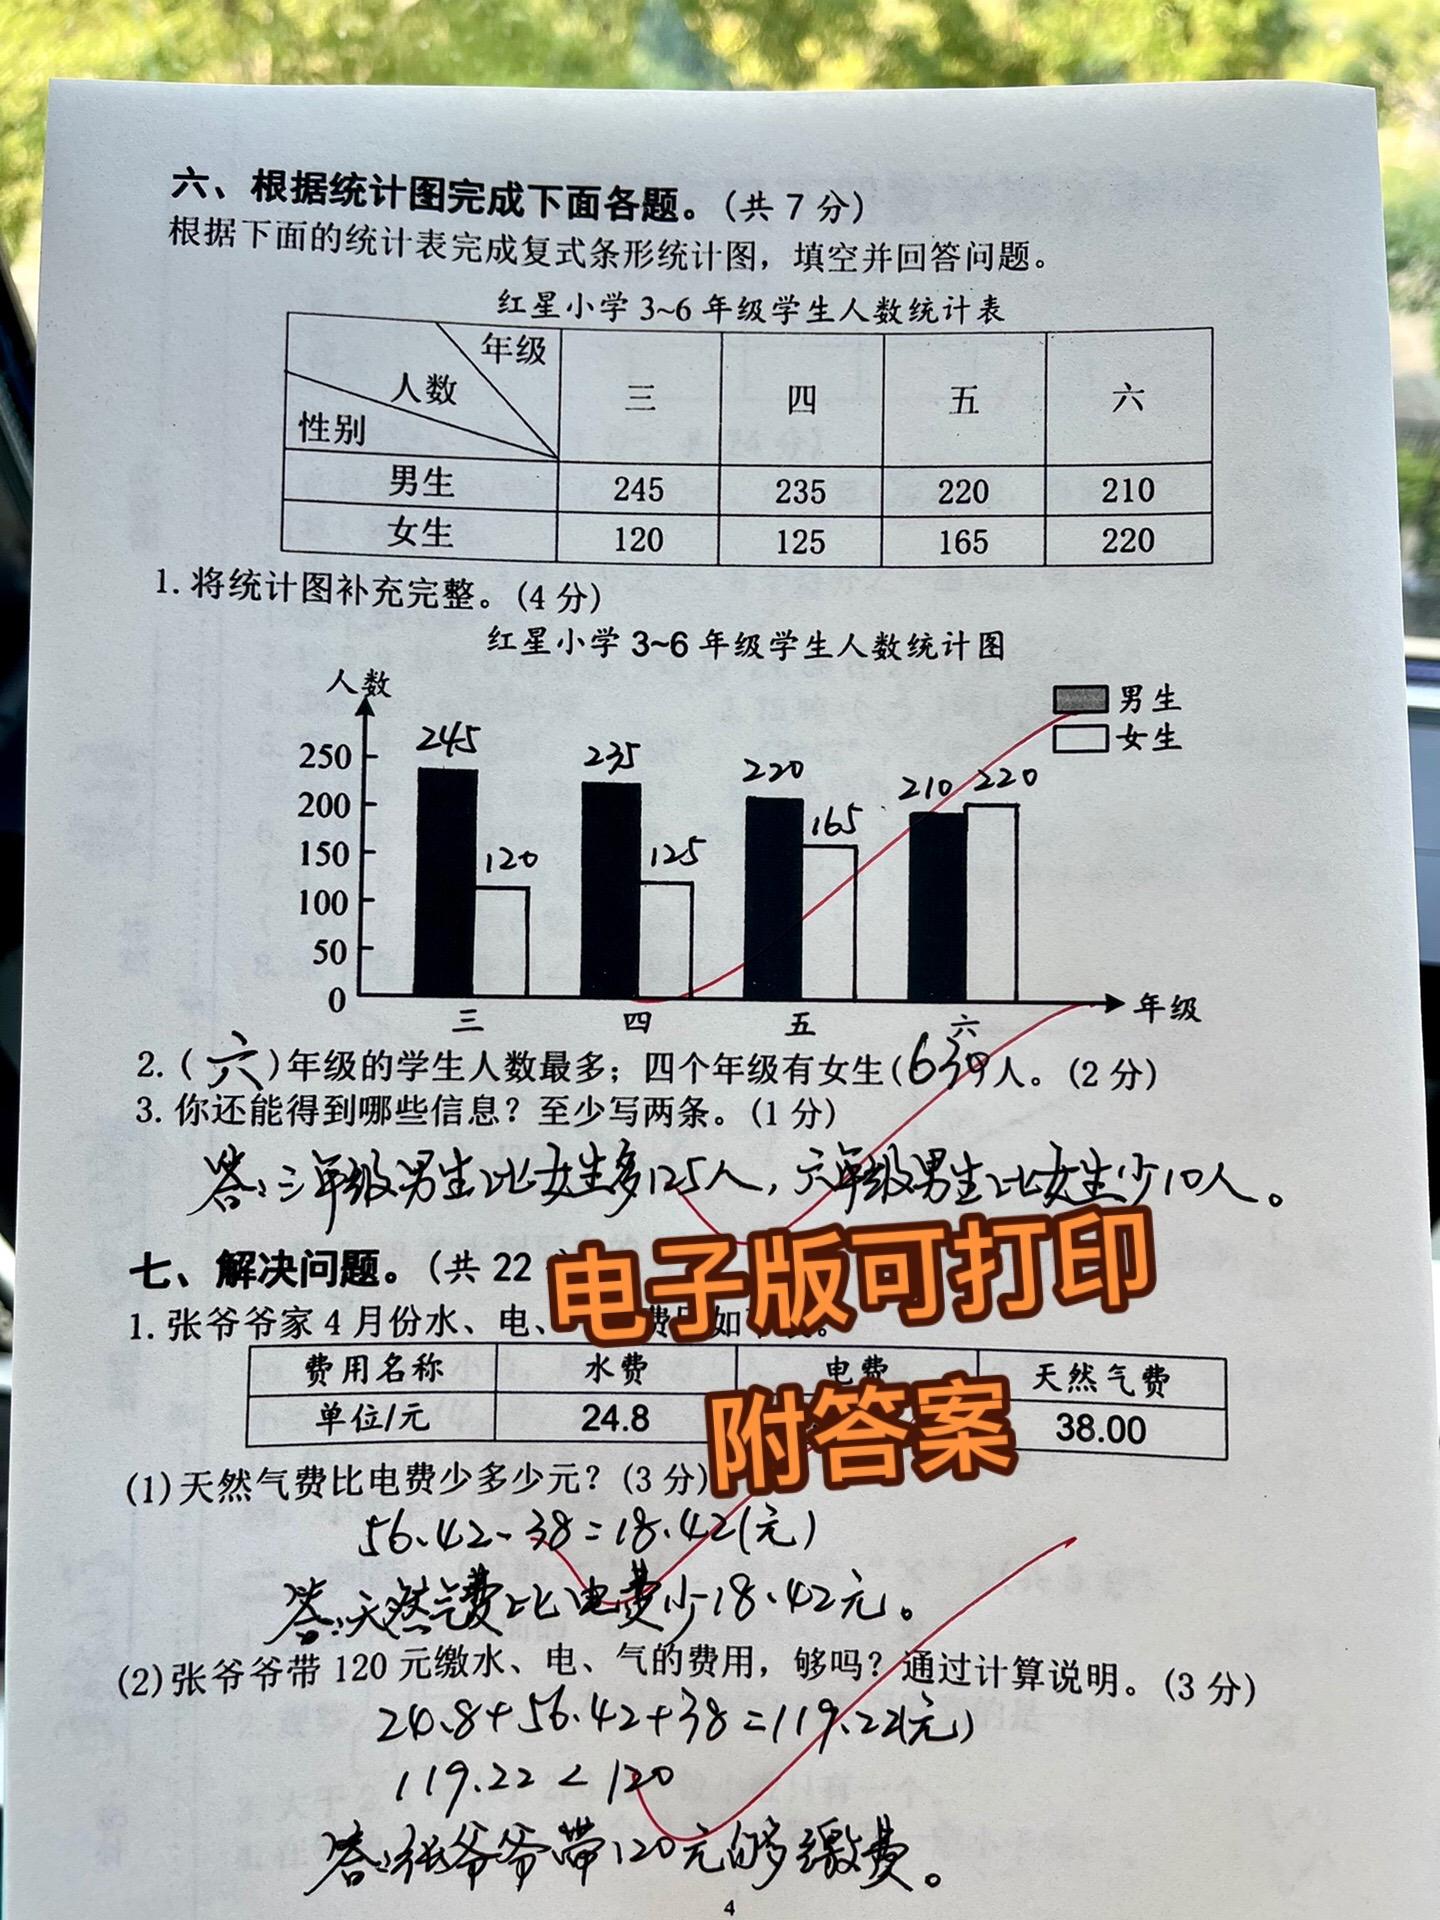 六、根据统计图完成下面各题。(共 7 分)
根据下面的统计表完成复式条形统计图，填空并回答问题。
红星小学 3~6 年级学生人数统计表
年级 人数 性别 三 四 五 六
男生 245 235 220 210
女生 120 125 165 220
1. 将统计图补充完整。(4 分)
红星小学 3~6 年级学生人数统计图
人数
男生
女生
245 235 220 210 220
120 125 165
250
200
150
100
50
0
三 四 五 六 年级
2. (六)年级的学生人数最多；四个年级有女生(630)人。(2 分)
3. 你还能得到哪些信息？至少写两条。(1 分)
答:三年级男生比女生多125人，六年级男生比女生少10人。
七、解决问题。(共 22
电子版可打印
1. 张爷爷家 4 月份水、电、
费用名称 水费 电费 天然气费
单位/元 24.8 38.00
附答案
(1)天然气费比电费少多少元？(3 分)
56.42-38=18.42(元)
答:天然气费比电费少18.42元。
(2)张爷爷带 120 元缴水、电、气的费用，够吗？通过计算说明。(3 分)
24.8+56.42+38=119.22(元)
119.22<120
答:张爷爷带120元够缴费。
4